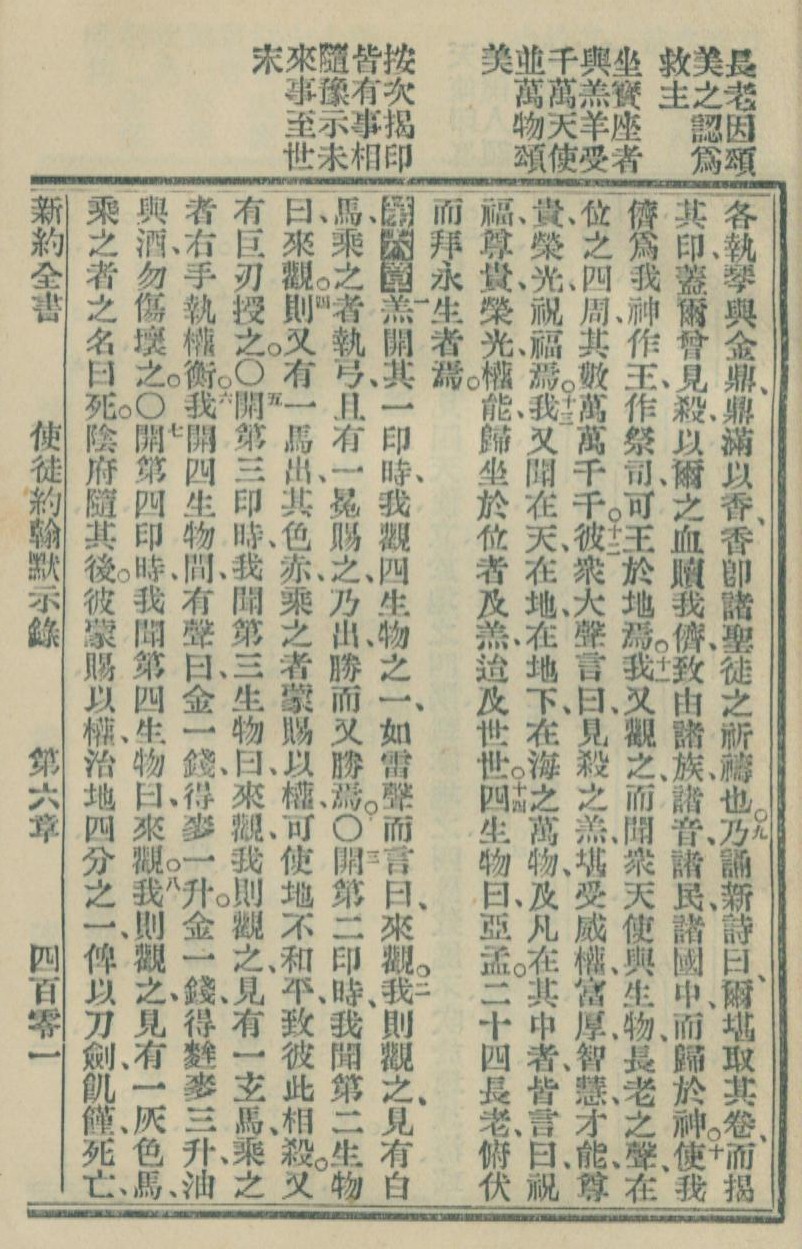 長老因頌
美之認爲
救主
坐寶座者
與羔羊受
千萬天使
並萬物頌
美
按次揭印
皆有事相
隨豫示未
來事至世
末
各執琴與金鼎、鼎滿以香、香卽諸聖徒之祈禱也。九乃誦新詩曰、爾堪取其卷、而揭
其印、蓋爾曾見殺、以爾之血贖我儕、致由諸族、諸音、諸民、諸國中、而歸於神。十使我
儕爲我神作王、作祭司、可王於地焉。十一我又觀之、而聞衆天使與生物、長老之聲、在
位之四周、其數萬萬千千。十二彼衆大聲言曰、見殺之羔、堪受威權、富厚、智慧、才能、尊
貴、榮光、祝福焉。十三我又聞在天、在地、在地下、在海之萬物、及凡在其中者、皆言曰、祝
福、尊貴、榮光、權能、歸坐於位者及羔、迨及世世。十四四生物曰、亞孟。二十四長老、俯伏
而拜永生者焉。
第六章一羔開其一印時、我觀四生物之一、如雷聲而言曰、來觀。二我則觀之、見有白
馬、乘之者執弓、且有一冕賜之、乃出、勝而又勝焉。〇三開第二印時、我聞第二生物
曰、來觀。四則又有一馬出、其色赤、乘之者蒙賜以權、可使地不和平、致彼此相殺。又
有巨刃授之。〇五開第三印時、我聞第三生物曰、來觀、我則觀之、見有一玄馬、乘之
者右手執權衡。六我聞四生物間有聲曰、金一錢、得麥一升。金一錢、得麰麥三升、油
與酒、勿傷壞之。〇七開第四印時、我聞第四生物曰、來觀。八我則觀之、見有一灰色馬、
乘之者之名曰死。陰府隨其後。彼蒙賜以權、治地四分之一、俾以刀劍、飢饉、死亡、
新約全書　使徒約翰默示錄　第六章　四百零一